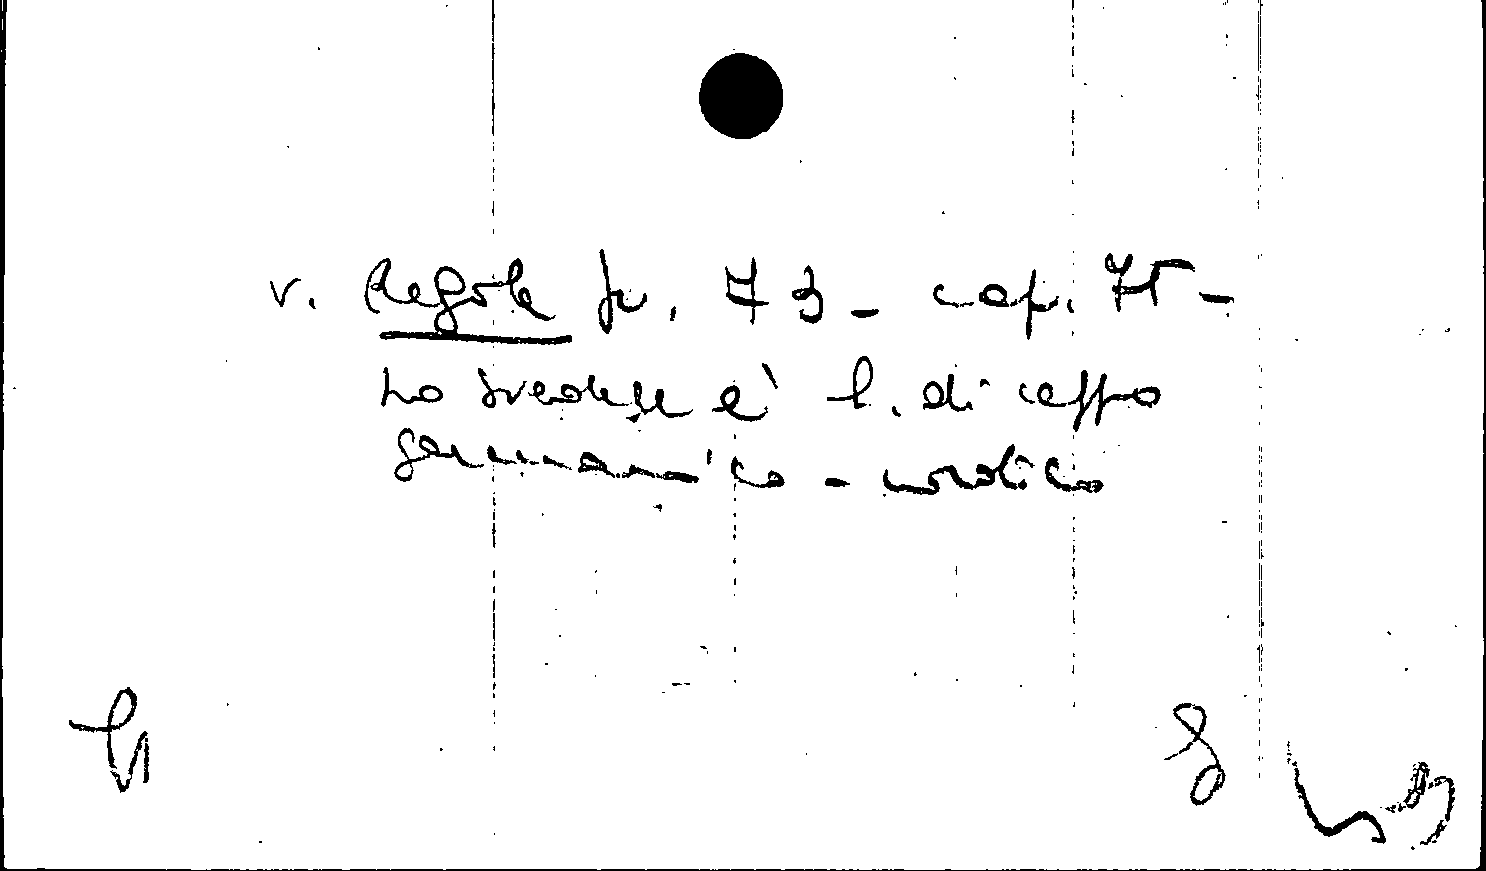 v. Regole fr. 73 - cap. 75 -
Lo svedese è l. di ceppo
germanico - nordico